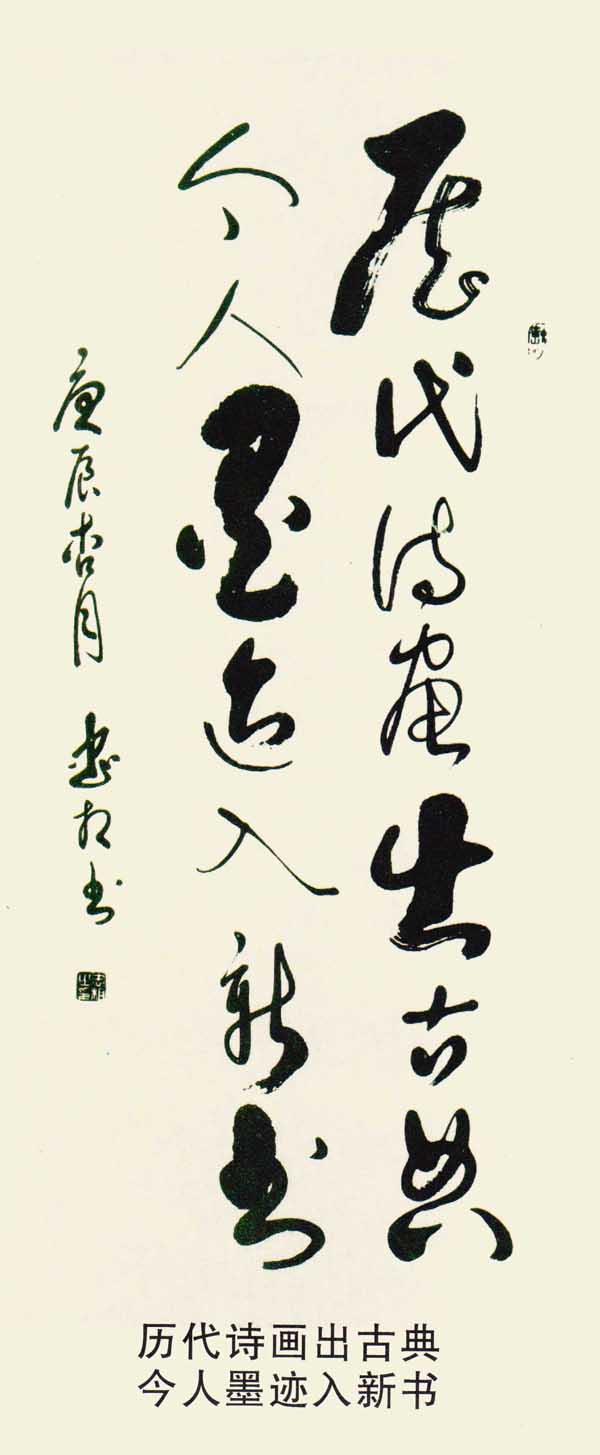 历代诗画出古典
今人墨迹入新书
庚辰杏月 书
历代诗画出古典
今人墨迹入新书